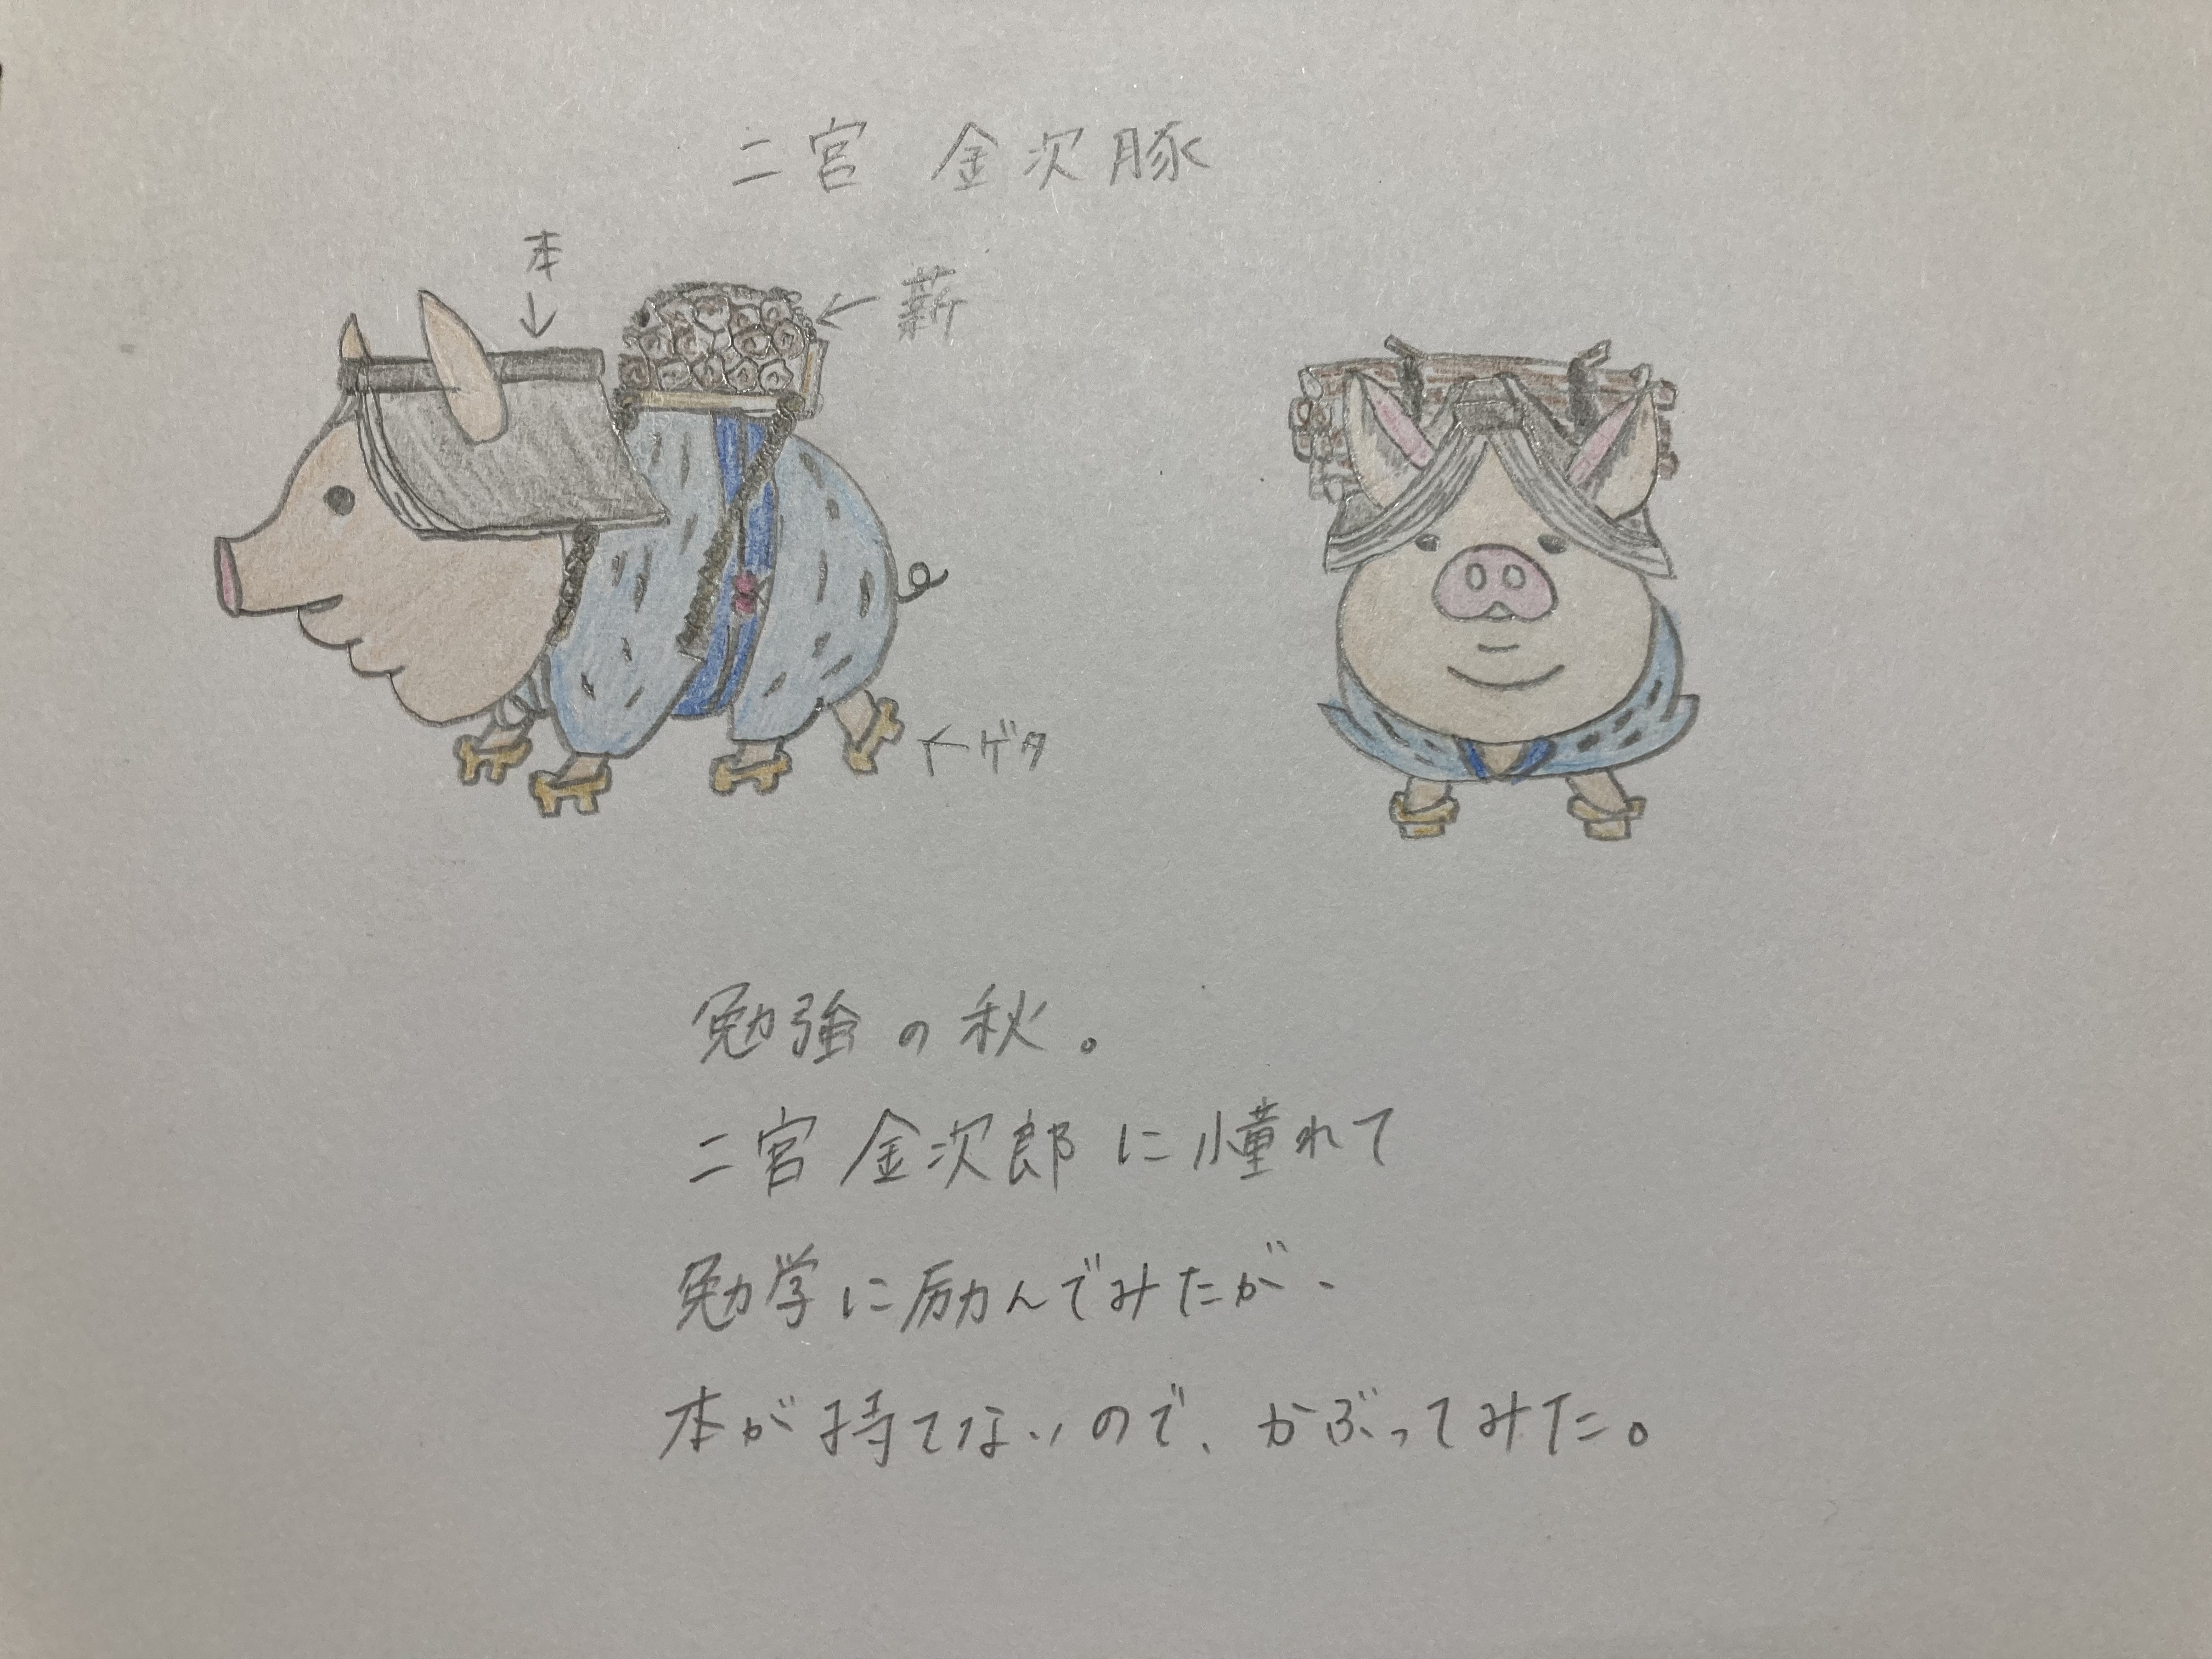 二宮 金次豚
本
↓
← 薪
← ゲタ
勉強の秋。
二宮 金次郎に憧れて
勉学に励んでみたが、
本が持てないので、かぶってみた。